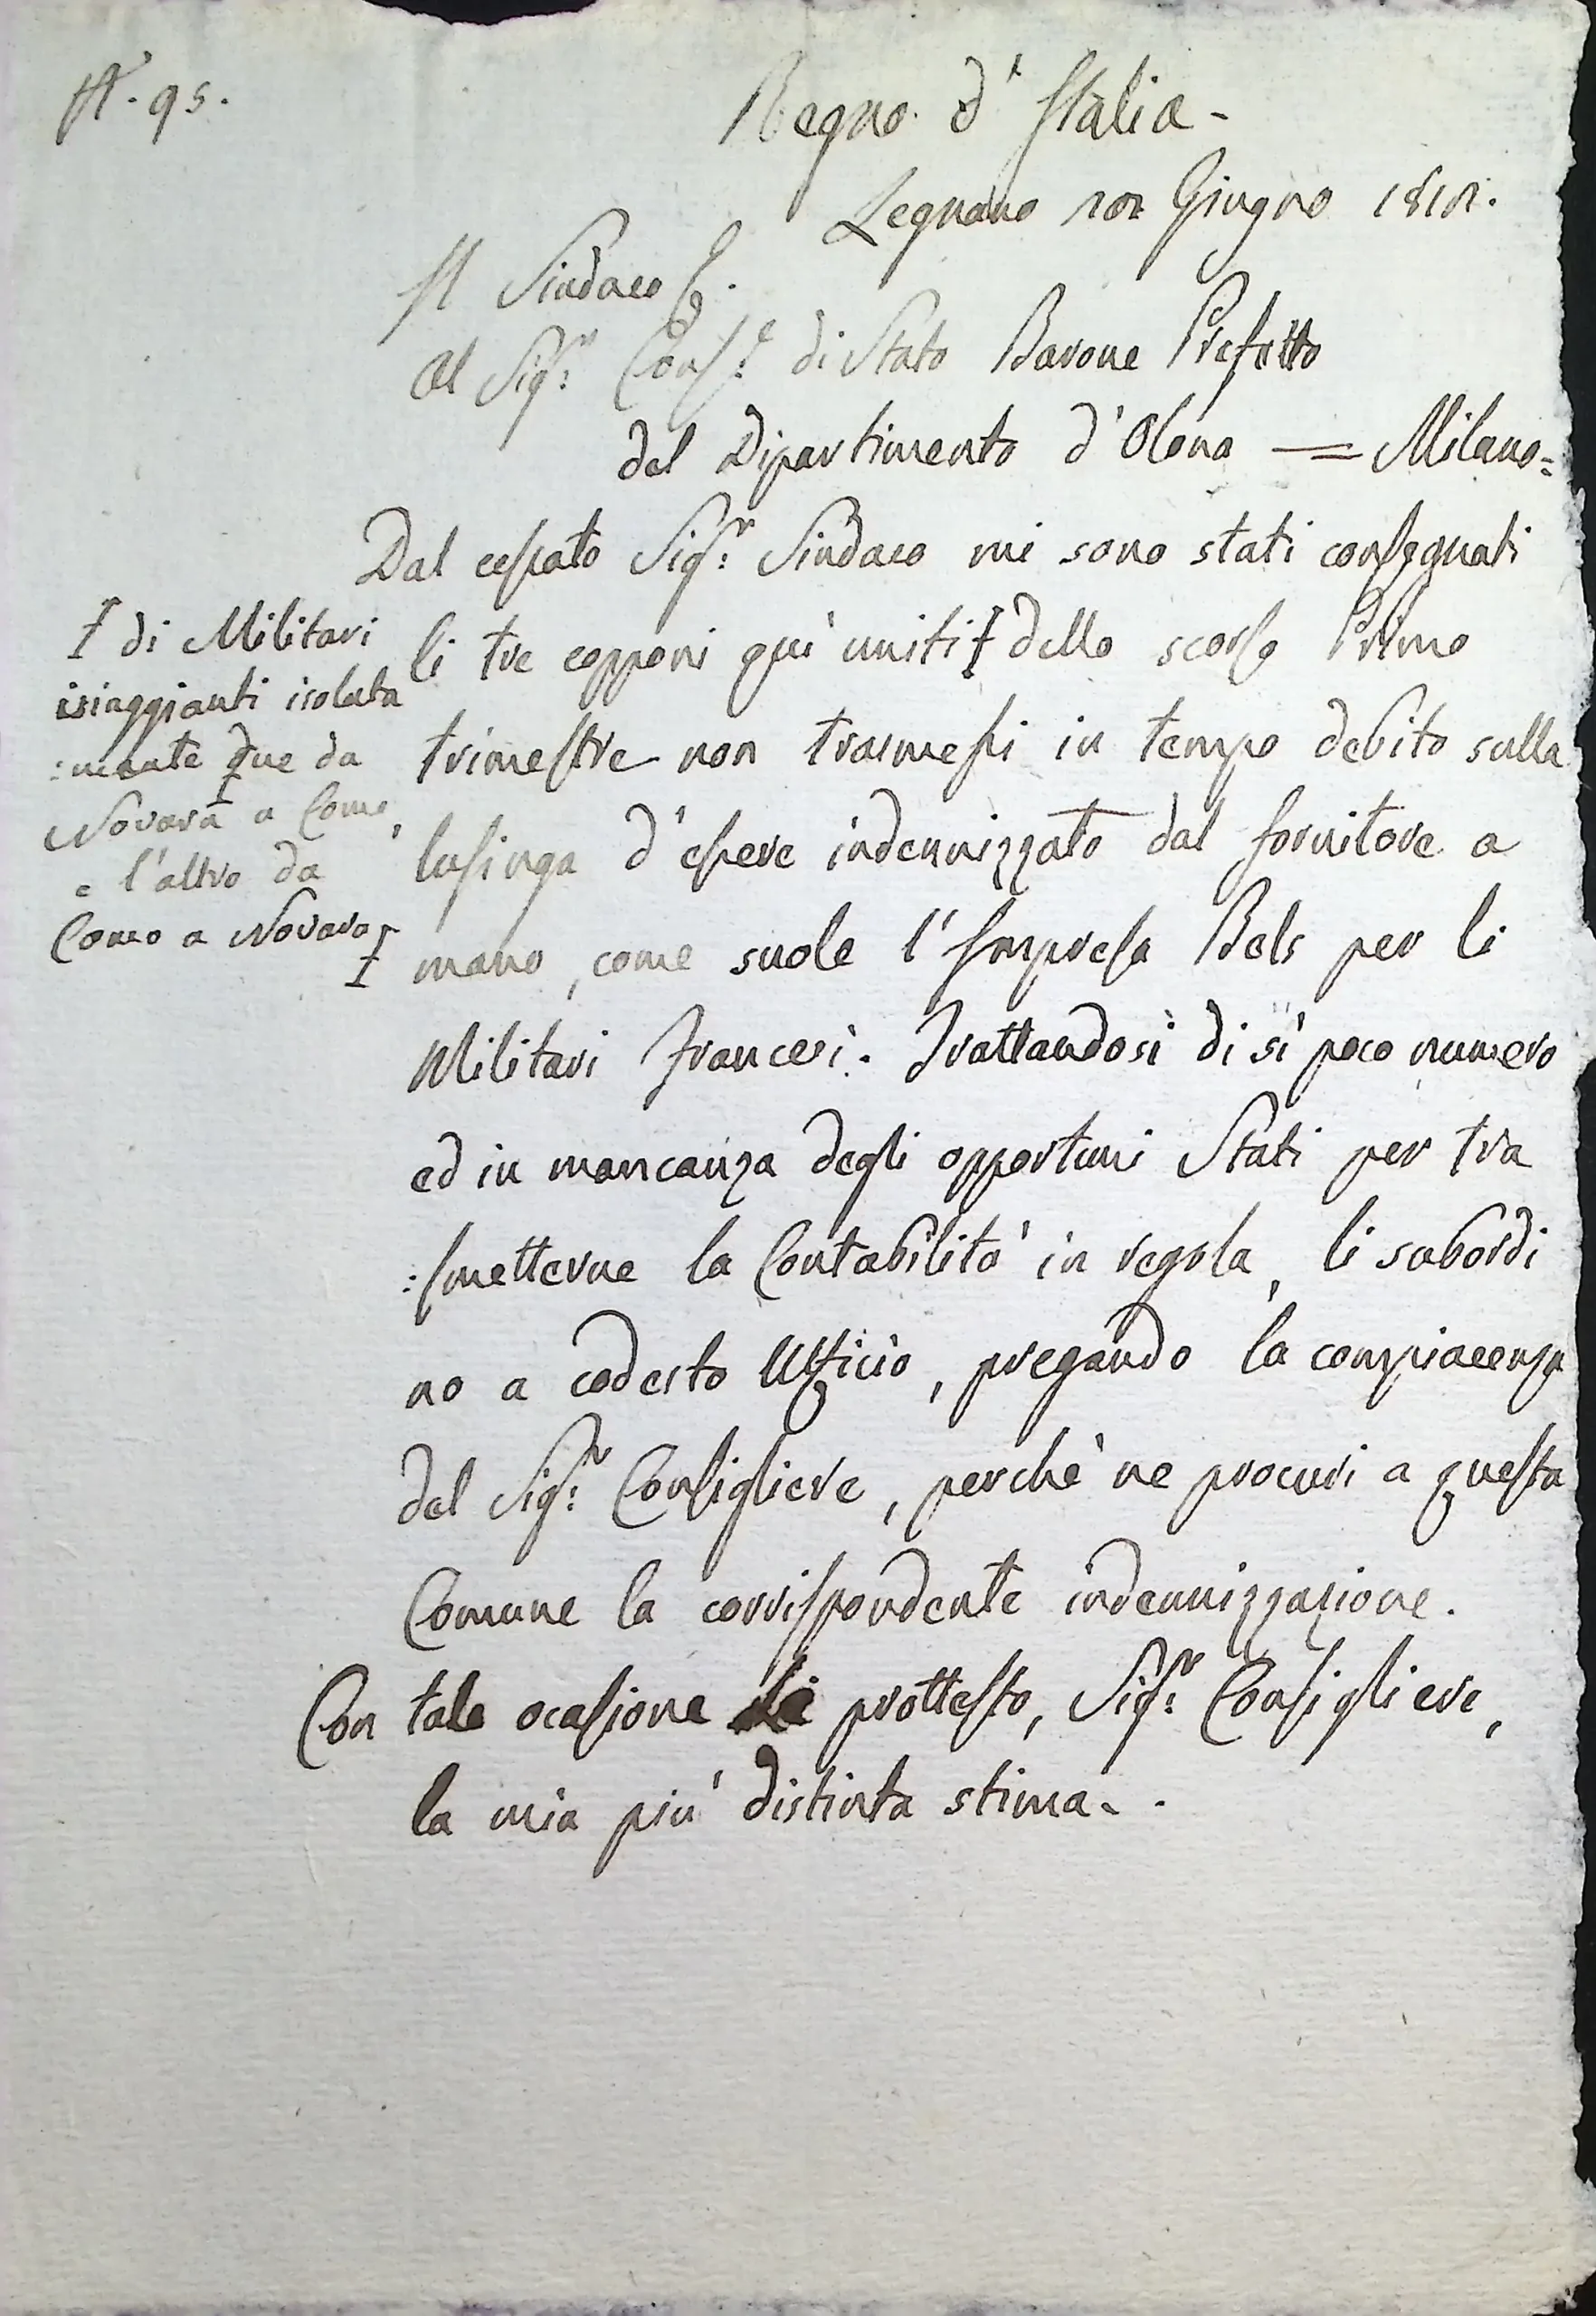 N. 95.
Regno d'Italia -
Legnano Giugno
Il Sindaco
Al Sig.r Cons.e di Stato Barone Prefetto
del Dipartimento d'Olona = Milano=
Dal cessato Sig.r Sindaco mi sono stati consegnati
li tre copponi quì uniti ‡ dello scorso Primo
trimestre non trasmessi in tempo debito sulla
lusinga d'essere indennizzato dal fornitore a
mano, come suole l'Impresa per li
Militari Francesi. Trattandosi di sì poco numero
ed in mancanza degli opportuni Stati per tra
:smetterne la Contabilità in regola, li subordi
no a codesto Ufficio, pregando la compiacenza
del Sig.r Consigliere, perchè ne procuri a questa
Comune la corrispondente indennizzazione.
Con tale ocasione Le prottesto, Sig.r Consigliere,
la mia più distinta stima. .
‡ di Militari
viaggianti isolata
:mente due da
Novara a Como,
e l'altro da
Como a Novara ‡